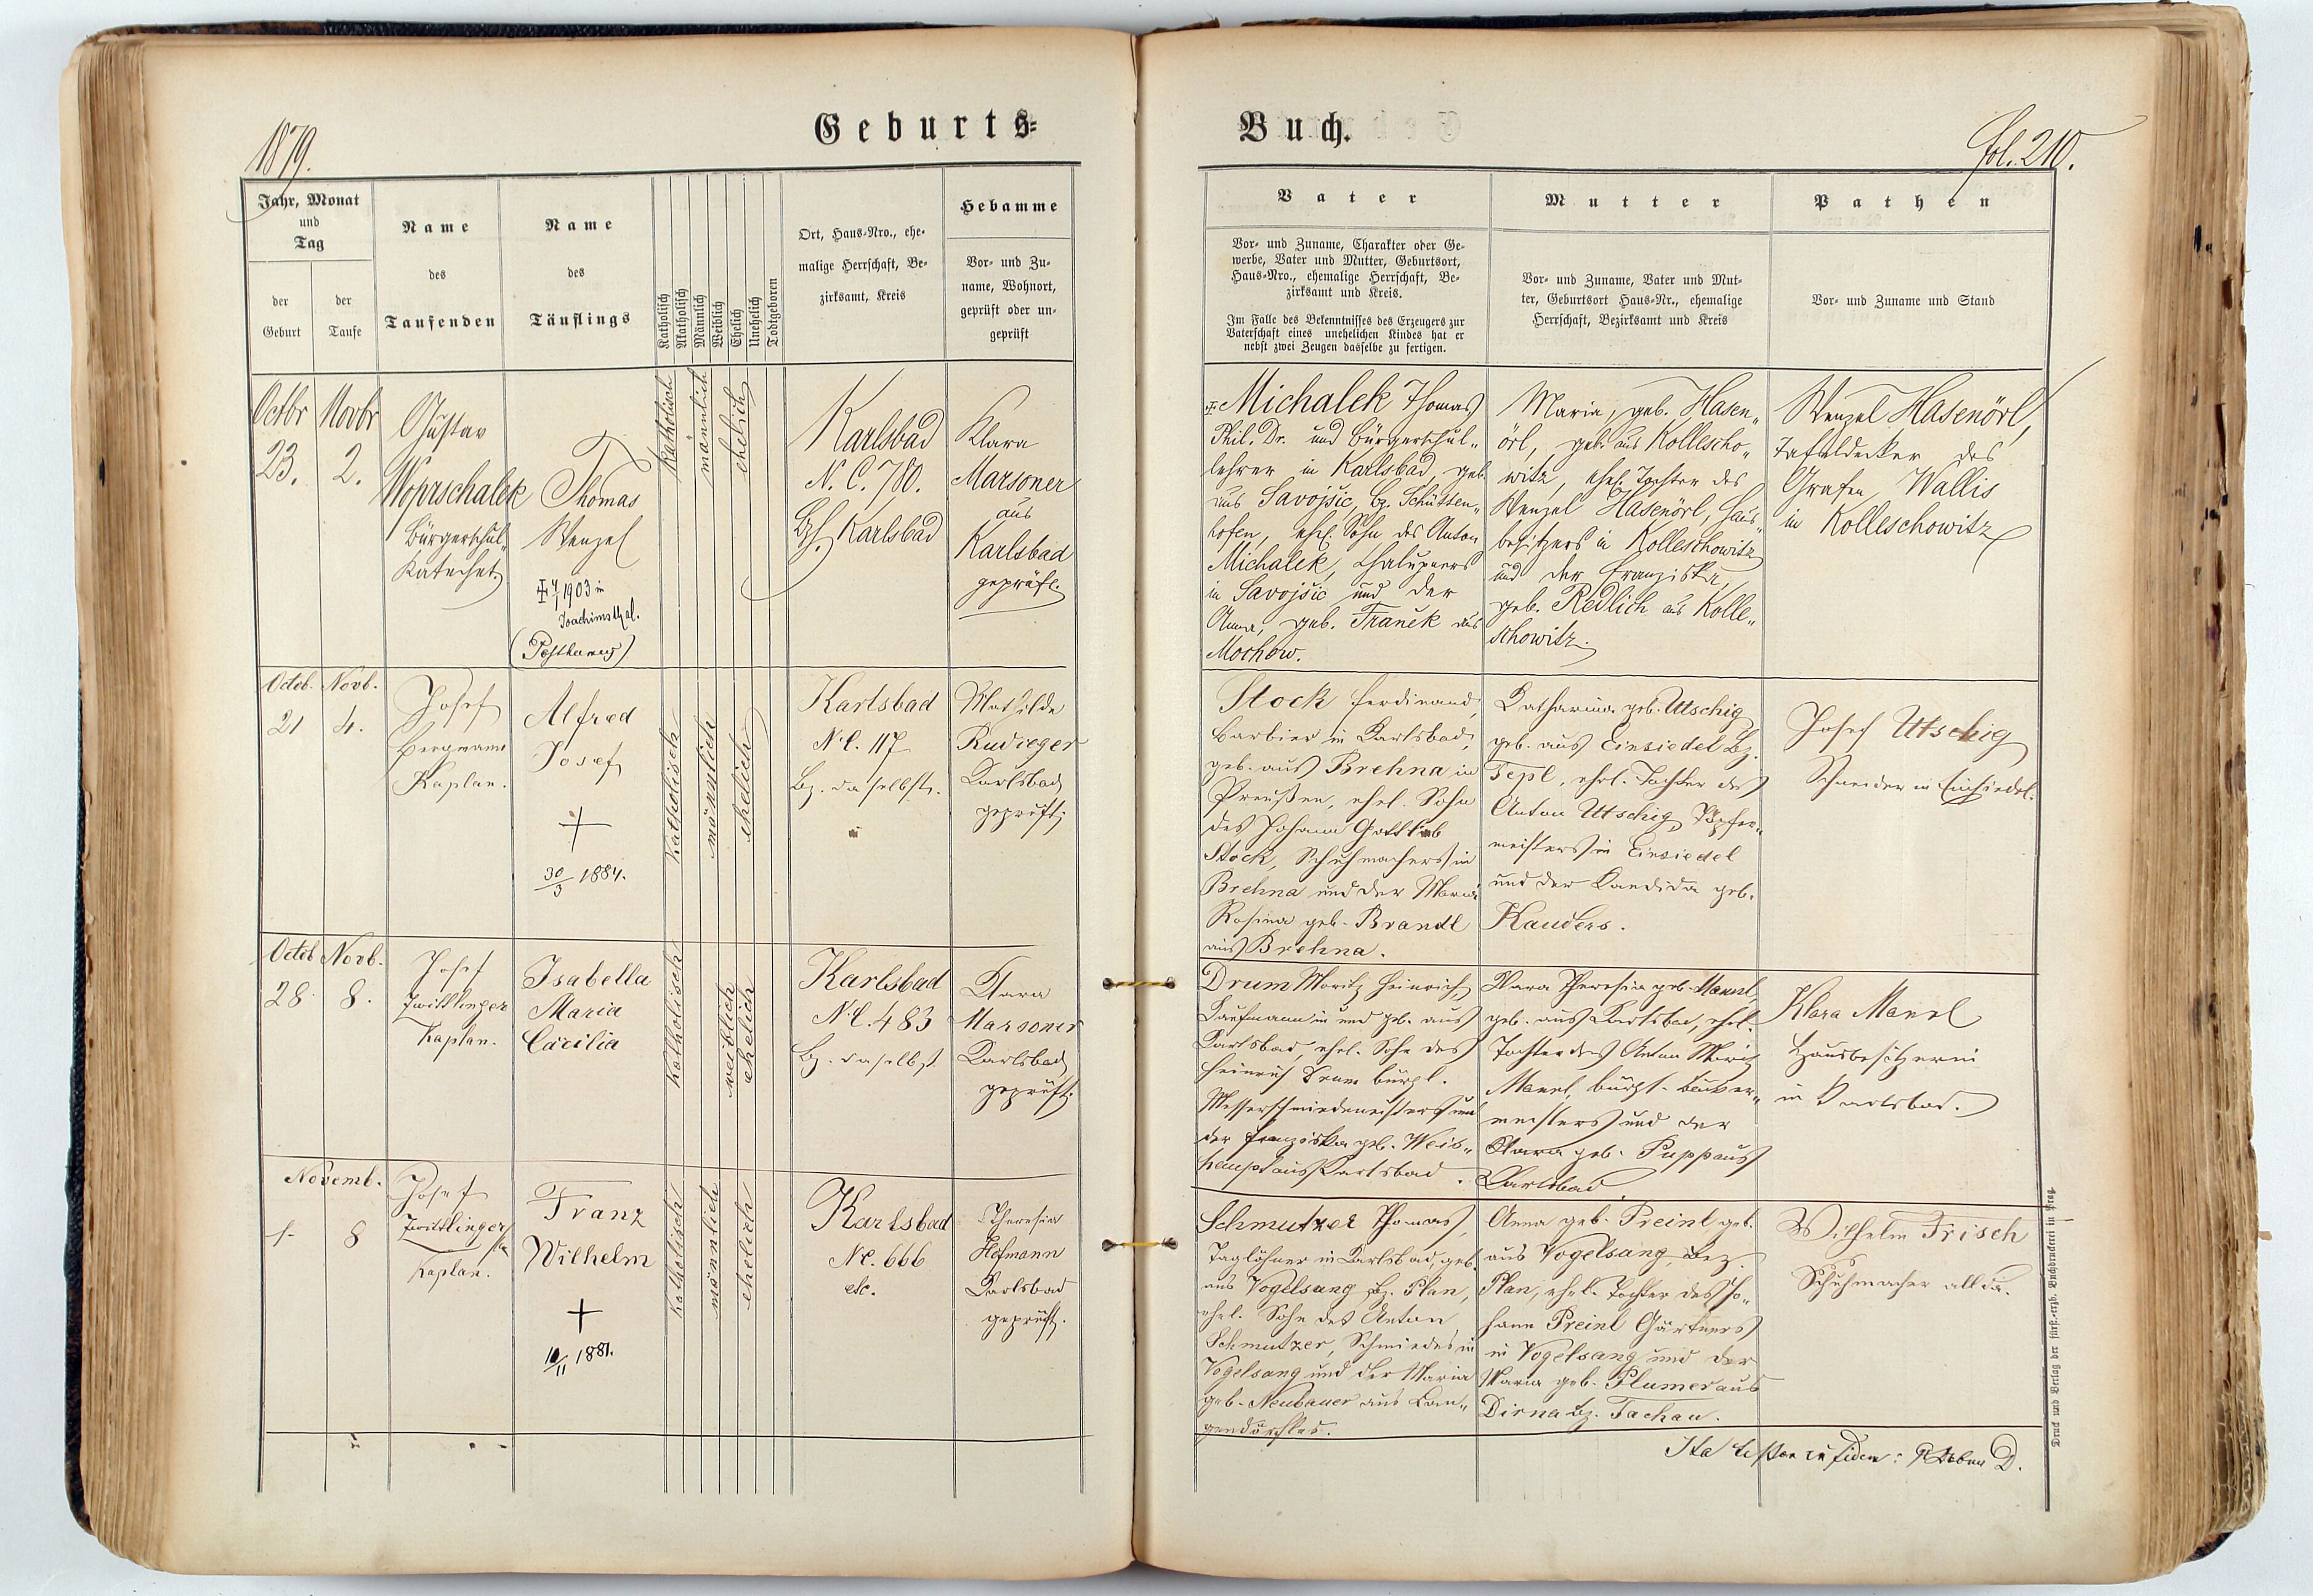 1879.
Geburts=
Jahr, Monat
und
Tag
der
Geburt
der
Taufe
Name
des
Taufenden
Name
des
Täuflings
Katholisch
Akatholisch
Männlich
Weiblich
Ehelich
Unehelich
Todtgeboren
Ort, Haus-Nro., ehe-
malige Herrschaft, Be-
zirksamt, Kreis
Hebamme
Vor- und Zu-
name, Wohnort,
geprüft oder un-
geprüft
Octbr
23.
Novbr
2.
Gustav
Wöhrschalek
Bürgerschul-
Katechet
Thomas
Wenzel
1903 in
Joachimsthal.
katholisch
männlich
ehelich
Karlsbad
N. C. 780.
Bzh. Karlsbad
Klara
Marsoner
aus
Karlsbad
geprüft.
Octob.
21
Novb.
4.
Josef
Bergmann
Kaplan.
Alfred
Josef
30/3 1884.
katholisch
männlich
ehelich
Karlsbad
N.C. 117
Bz. daselbst.
Mathilde
Rudieger
Karlsbad
geprüft.
Octob
28.
Novb.
8.
Josef
Zwittlinger
Kaplan.
Isabella
Maria
Cäcilia
katholisch
weiblich
ehelich
Karlsbad
N.C. 483
Bz. daselbst.
Klara
Marsoner
Karlsbad
geprüft.
Novemb.
1.
8
Josef
Zwittlinger
Kaplan.
Franz
Wilhelm
10/11 1881.
katholisch
männlich
ehelich
Karlsbad
N.C. 666
etc.
Theresia
Hofmann
Karlsbad
geprüft.
Buch.
fol. 210.
Vater
Vor- und Zuname, Charakter oder Ge-
werbe, Vater und Mutter, Geburtsort,
Haus-Nro., ehemalige Herrschaft, Be-
zirksamt und Kreis.
Im Falle des Bekenntnisses des Erzeugers zur
Vaterschaft eines unehelichen Kindes hat er
nebst zwei Zeugen dasselbe zu fertigen.
Mutter
Vor- und Zuname, Vater und Mut-
ter, Geburtsort Haus-Nr., ehemalige
Herrschaft, Bezirksamt und Kreis
Pathen
Vor- und Zuname und Stand
Michalek Thomas
Phil. Dr. und Bürgerschul-
lehrer in Karlsbad, geb.
aus Savojšic, Bz. Schütten-
hofen, ehel. Sohn des Anton
Michalek, Chalupners
in Savojšic und der
Anna, geb. Franěk aus
Mochow.
Maria, geb. Hasen-
örl, geb. aus Kollescho-
witz, ehel. Tochter des
Wenzel Hasenörl, Haus-
besitzers in Kolleschowitz
und der Franziska,
geb. Redlich aus Kolle-
schowitz.
Wenzel Hasenörl,
Tafeldecker des
Grafen Wallis
in Kolleschowitz
Stock Ferdinand,
Barbier in Karlsbad,
geb. aus Brehna in
Preußen, ehel. Sohn
des Johann Gottlieb
Stock, Schuhmachers in
Brehna und der Maria
Rosina geb. Brandl
aus Brehna.
Katharina geb. Utschig
geb. aus Einsiedel Bz.
Tepl, ehel. Tochter des
Anton Utschig, Töpfer-
meisters in Einsiedel
und der Kandida geb.
Kauders.
Josef Utschig
Schneider in Einsiedel.
Drum Moritz Heinrich,
Kaufmann in und geb. aus
Karlsbad, ehel. Sohn des
Heinrich Drum bürgl.
Messerschmiedemeisters und
der Franziska geb. Weis-
haupt aus Karlsbad.
Klara Theresia geb. Mannl,
geb. aus Karlsbad, ehel.
Tochter des Anton
Mannl, bürgl. Bäcker-
meisters und der
Klara geb. Pupp aus
Karlsbad.
Klara Mannl
Hausbesitzerin
in Karlsbad.
Schmutzer Thomas,
Taglöhner in Karlsbad, geb.
aus Vogelsang Bz. Plan,
ehel. Sohn des Anton
Schmutzer, Schmiedes in
Vogelsang und der Maria
geb. Neubauer aus Lan-
gendörflas.
Anna geb. Preinl geb.
aus Vogelsang, Bez.
Plan, ehel. Tochter des Jo-
hann Preinl Gärtners
in Vogelsang und der
Maria geb. Plumer aus
Dirna Bz. Tachau.
Wilhelm Frisch
Schuhmacher allda.
Ita testor in fidem:
Druck und Verlag der fürst.-erzb. Buchdruckerei in Prag.